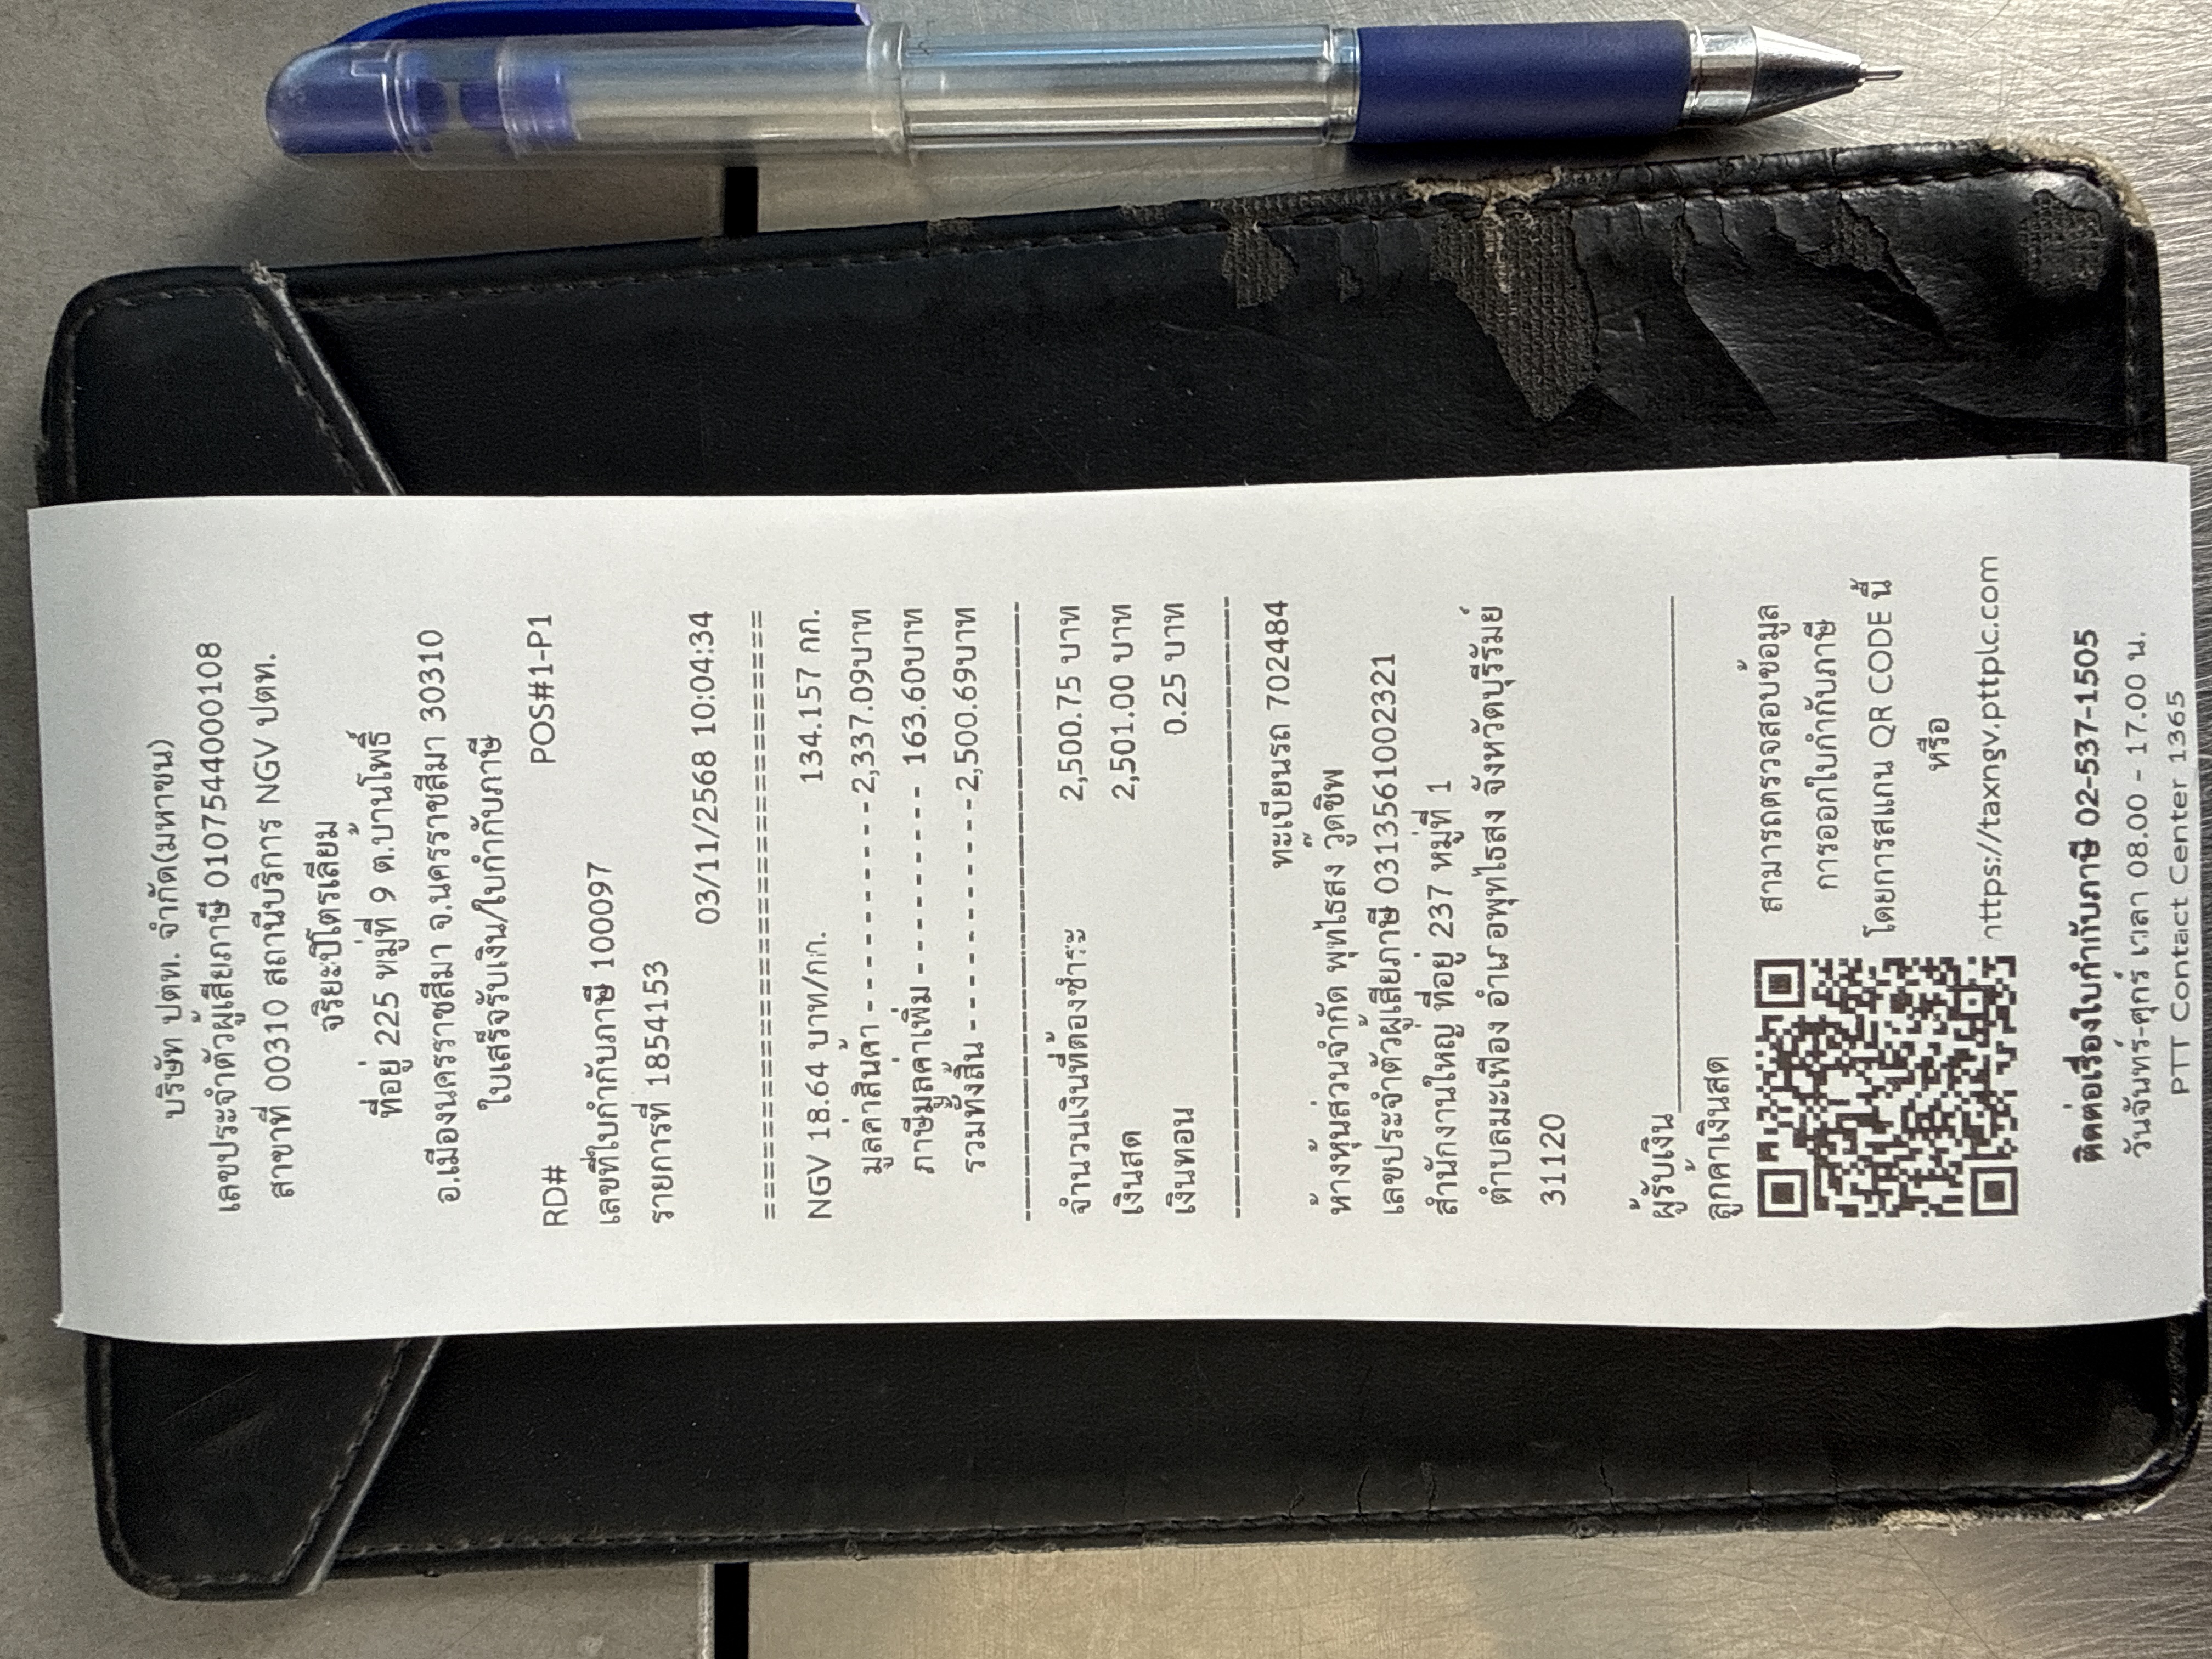 บริษัท ปตท. จำกัด(มหาชน)
เลขประจำตัวผู้เสียภาษี 0107544000108
สาขาที่ 00310 สถานีบริการ NGV ปตท.
จริยะปิโตรเลียม
ที่อยู่ 225 หมู่ที่ 9 ต.บ้านโพธิ์
อ.เมืองนครราชสีมา จ.นครราชสีมา 30310
ใบเสร็จรับเงิน/ใบกำกับภาษี
RD# POS#1-P1
เลขที่ใบกำกับภาษี 100097
รายการที่ 1854153
03/11/2568 10:04:34
NGV 18.64 บาท/กก. 134.157 กก.
มูลค่าสินค้า - - - - - - - - - - -2,337.09บาท
ภาษีมูลค่าเพิ่ม - - - - - - - - - - 163.60บาท
รวมทั้งสิ้น - - - - - - - - - - - -2,500.69บาท
จำนวนเงินที่ต้องชำระ 2,500.75 บาท
เงินสด 2,501.00 บาท
เงินทอน 0.25 บาท
ทะเบียนรถ 702484
ห้างหุ้นส่วนจำกัด พุทไธสง วู๊ดชิพ
เลขประจำตัวผู้เสียภาษี 0313561002321
สำนักงานใหญ่ ที่อยู่ 237 หมู่ที่ 1
ตำบลมะเฟือง อำเภอพุทไธสง จังหวัดบุรีรัมย์
31120
ผู้รับเงิน
ลูกค้าเงินสด
สามารถตรวจสอบข้อมูล
การออกใบกำกับภาษี
โดยการสแกน QR CODE นี้
หรือ
https://taxngv.pttplc.com
ติดต่อเรื่องใบกำกับภาษี 02-537-1505
วันจันทร์-ศุกร์ เวลา 08.00 - 17.00 น.
PTT Contact Center 1365